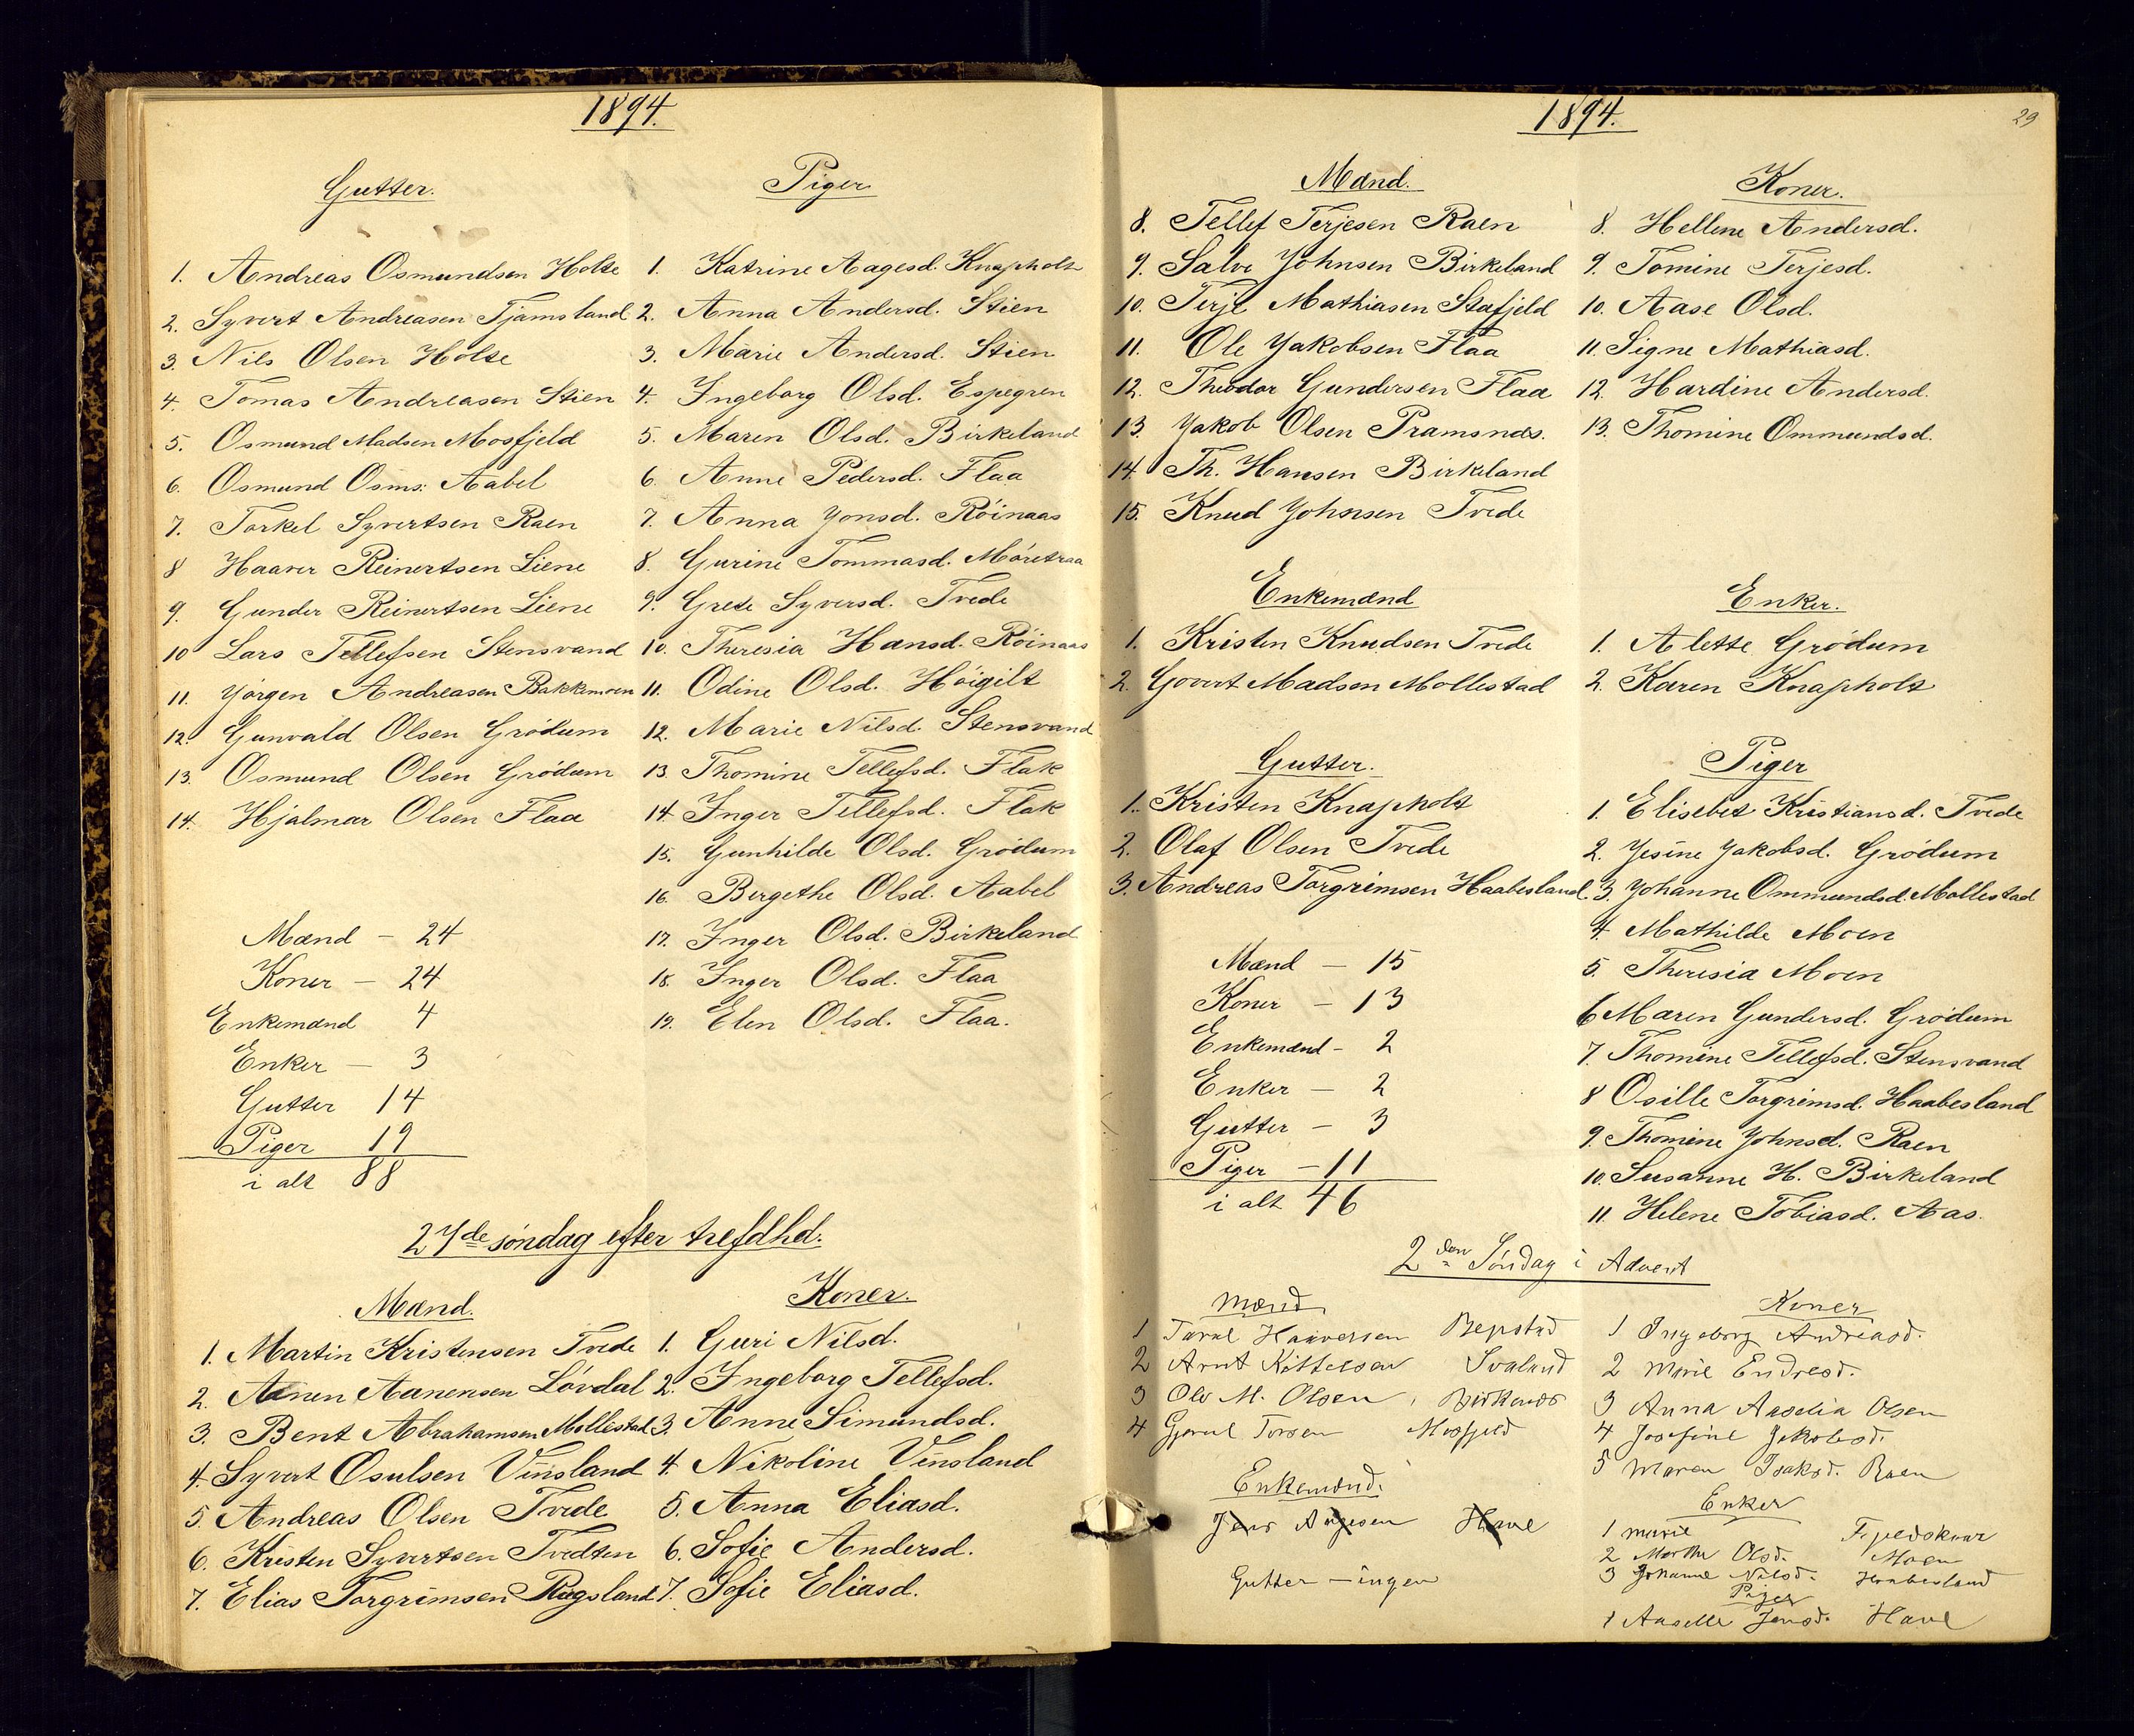 1894.
Gutter.
1. Andreas Osmundsen Holte
2. Syvert Andreasen Tjamsland
3. Nils Olsen Holte
4. Tomas Andreasen Stien
5. Osmund Madsen Mosfjeld
6. Osmund Osms: Aabel
7. Torkel Syvertsen Raen
8 Haaver Reinertsen Liene
9. Gunder Reinertsen Liene
10 Lars Tellefsen Stensvand
11. Yörgen Andreasen Bakkemoen
12. Gunvald Olsen Grödum
13. Osmund Olsen Grödum
14. Hjalmar Olsen Flaa
Mænd - 24
Koner - 24
Enkemænd 4
Enker - 3
Gutter 14
Piger 19
i alt 88
Piger
1. Katrine Aagesd. Knapholt
2. Anna Andersd. Stien
3. Marie Andersd. Stien
4. Ingeborg Olsd. Espegren
5. Maren Olsd. Birkeland
6. Anne Pedersd. Flaa
7. Anna Yonsd. Röinaas
8. Gurine Tommasd. Möretraa
9. Grete Syversd. Tvede
10. Theresia Hansd. Röinaas
11. Odine Olsd. Höigilt
12. Marie Nilsd. Stensvand
13 Thomine Tellefsd. Flak
14 Inger Tellefsd. Flak
15. Gunhilde Olsd. Grödum
16. Bergethe Olsd. Aabel
17. Inger Olsd. Birkeland
18. Inger Olsd. Flaa
19. Elen Olsd. Flaa.
27de söndag efter trefdhd.
Mænd.
1. Martin Kristensen Tvede
2. Aanen Aanensen Lövdal
3. Bent Abrahamsen Mollestad
4. Syvert Osulsen Vinsland
5. Andreas Olsen Tvede
6. Kristen Syvertsen Tvedten
7. Elias Torgrimsen Rugsland
Koner.
1. Guri Nilsd.
2. Ingeborg Tellefsd.
3. Anne Simundsd.
4. Nikoline Vinsland
5. Anna Eliasd.
6. Sofie Andersd.
7. Sofie Eliasd.
1894.
29
Mænd.
8. Tellef Terjesen Raen
9. Salve Yohnsen Birkeland
10. Terje Mathiasen Stafjeld
11. Ole Yakobsen Flaa
12. Theodor Gundersen Flaa
13. Yakob Olsen Pramsnæs.
14. Th. Hansen Birkeland
15. Knud Yohnsen Tvede
Koner.
8. Hellene Andersd.
9. Tomine Terjesd.
10. Aase Olsd.
11. Signe Mathiasd.
12. Hardine Andersd.
13. Thomine Ommundsd.
Enkemænd
1. Kristen Knudsen Tvede
2. Govert Madsen Mollestad
Enker.
1. Alette Grödum
2. Karen Knapholt
Gutter.
1. Kristen Knapholt
2. Olaf Olsen Tvede
3. Andreas Torgrimsen Haabesland.
Mænd - 15
Koner - 13
Enkemænd - 2
Enker - 2
Gutter - 3
Piger - 11
i alt 46
Piger
1. Elisebet Kristiansd. Tvede
2. Yesine Yakobsd. Grödum
3. Yohanne Ommundsd. Mollestad
4. Mathilde Moen
5. Theresia Moen
6 Maren Gundersd. Grödum
7. Thomine Tellefsd. Stensvand
8 Osille Torgrimsd. Haabesland
9. Thomine Yohnsd. Raen
10. Susanne H. Birkeland
11. Helene Tobiasd. Aas.
2den Söndag i Advent
Mænd
1 Taral Haaversen
2 Arnt Kittelsen Svaland
3 Ole M. Olsen, Birkeland
4 Torsen Mosfjeld
Enkemænd.
Jens Aagesen Have
Gutter - ingen
Koner
1 Ingeborg Andreasd.
2 Marie Endresd.
3 Anna Aaselia Olsen
4 Josefine Jakobsd.
5 Maren Isaksd. Raen
Enker
1 Marie
2 Marthe Olsd. Moen
3 Johanne Nilsd. Haabesland
Piger
1 Aaselle Jensd. Have